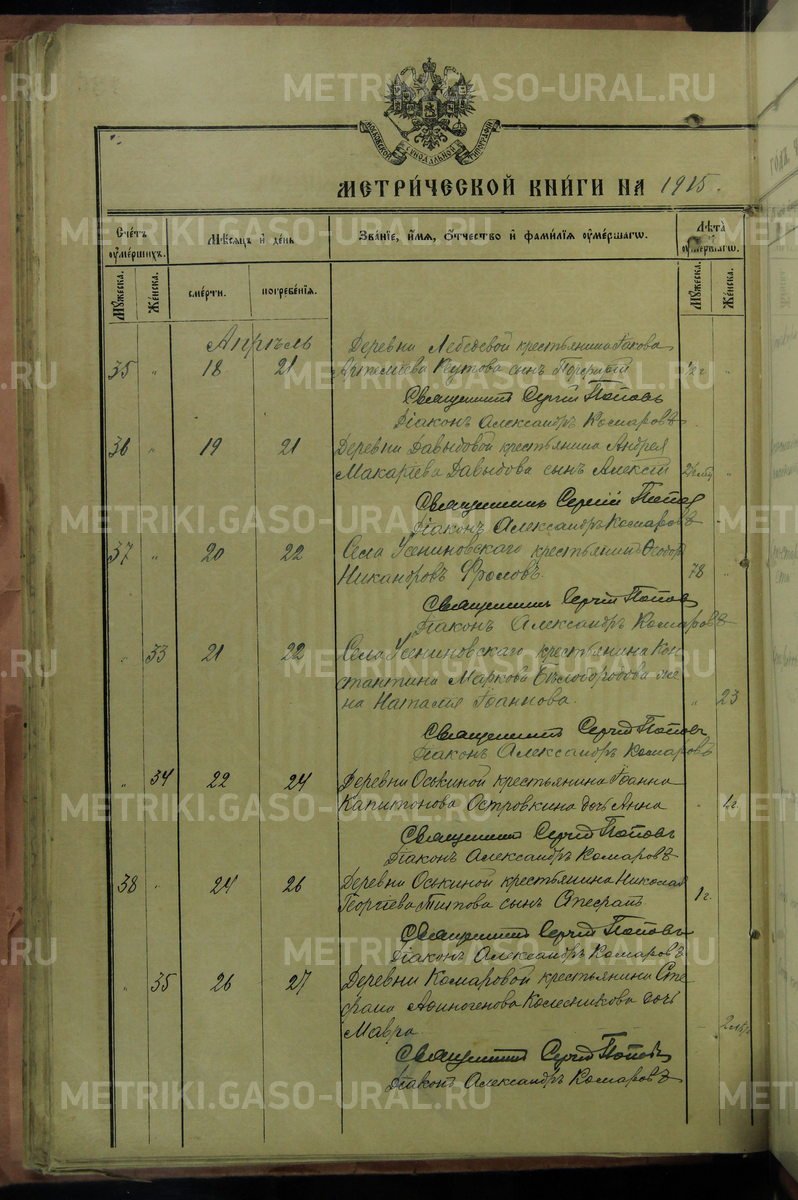 МОСКОВСКОЙ СѴНОДАЛЬНОЙ ТИПОГРАФІИ
МЕТРИ́ЧЕСКОЙ КНИ́ГИ НА 1915.
Счетъ ѹмершихъ. Мѣсяцъ и день Званіе, имя, отчество и фамилія ѹмершаго. Лѣта ѹмершаго.
Мужеска. Женска. смерти. погребенія. Мужеска. Женска.
Апрѣль Деревни Лебедевой крестьянина Іакова
35 " 18 21 Артемьева Кутова сынъ Порфирій ½ г "
Священникъ Сергій Поповъ
Діаконъ Александръ Комаровъ
36 " 19 21 Деревни Давыдовой крестьянина Андрея
Макарьева Давыдова сынъ Алексѣй "
Священникъ Сергій Попов
Діаконъ Александръ Комаровъ
37 " 20 22 Села Усениновскаго крестьянинъ Ѳеодоръ
Никандровъ Фроловъ. 78 "
Священникъ Сергій Поповъ
Діаконъ Александръ Комаровъ
" 33 21 22 Села Усениновскаго крестьянина Кон
стантина Маркова Бѣлобородова же
на Наталія Іоаннова. " 23
Священникъ Сергій Поповъ
Діаконъ Александръ Комаровъ
" 34 22 24 Деревни Оськиной крестьянина Іоанна
Капитонова Островкина дочь Анна 1 г.
Священникъ Сергій Поповъ
Діаконъ Александръ Комаровъ
38 " 24 26 Деревни Оськиной крестьянина Николая
Георгіева Титова сынъ 1 г.
Священникъ Сергій Поповъ
Діаконъ Александръ Комаровъ
" 35 26 27 Деревни Комаровой крестьянина Сте
фана Аѳиногенова Колесникова дочь
Мавра
Священникъ Сергій Поповъ
Діаконъ Александръ Комаровъ
METRIKI.GASO-URAL.RU